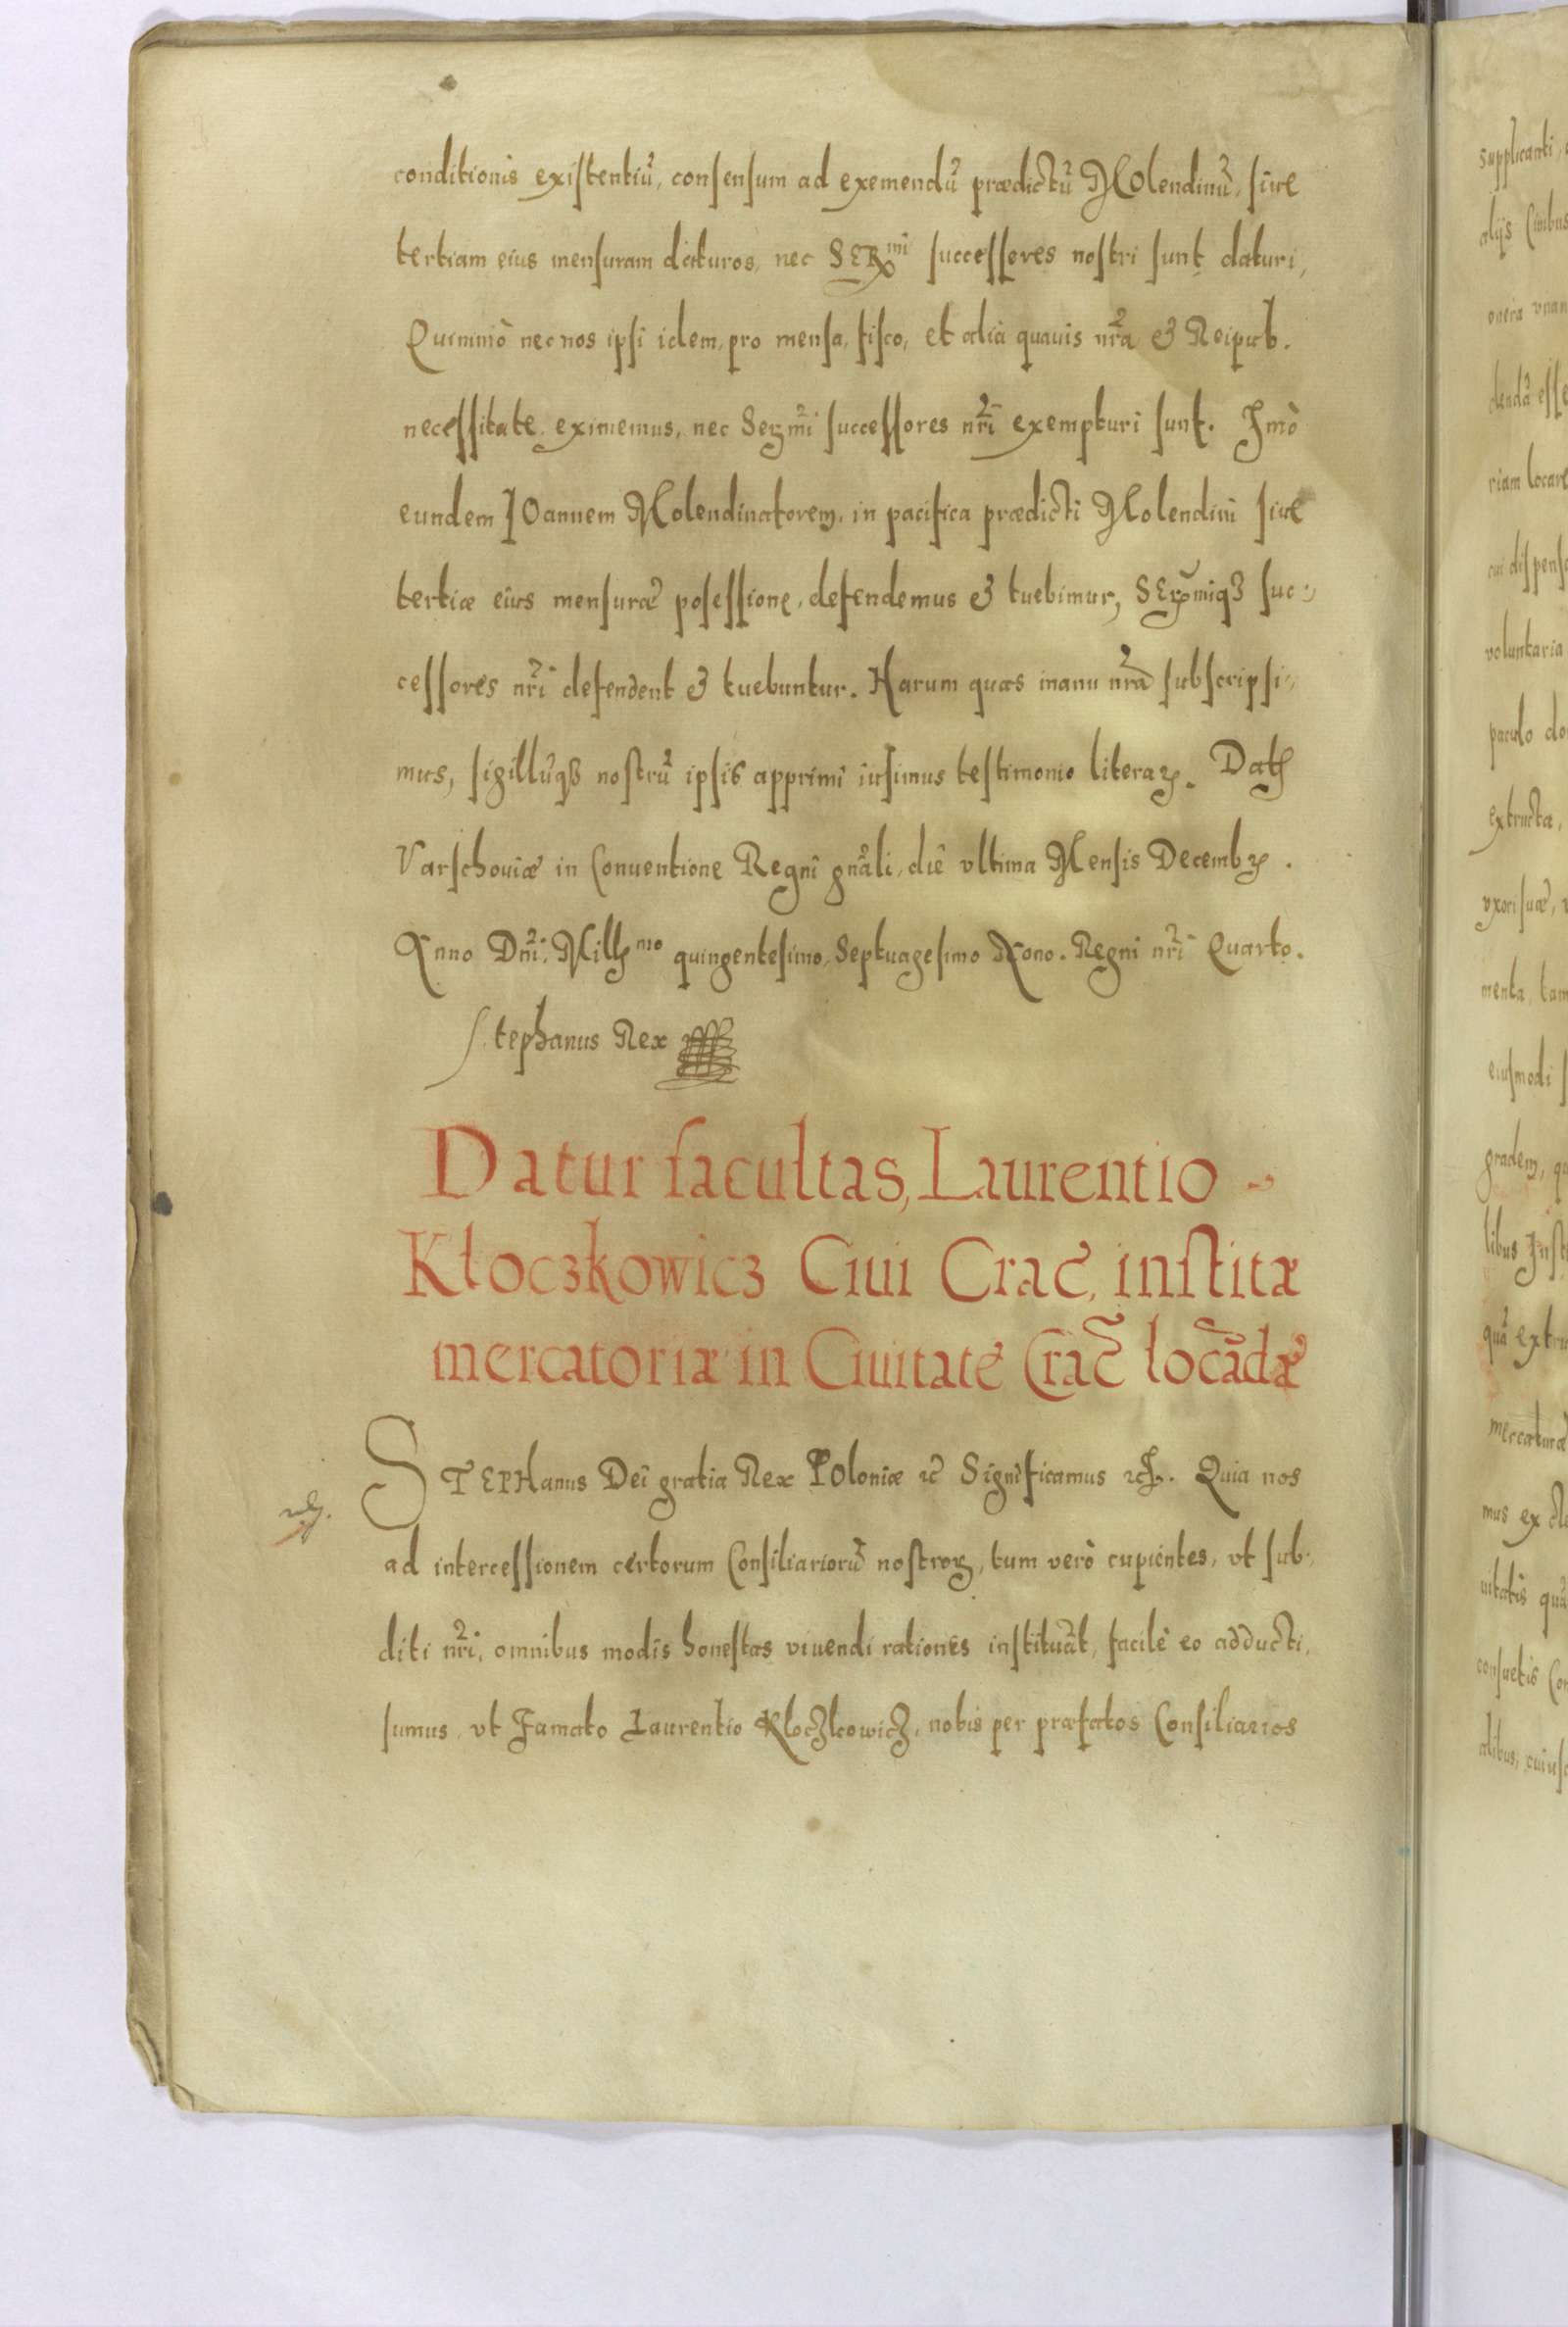 conditionis existentiũ, consensum ad exemendũ prædictũ Molendinũ, siue
tertiam eius mensuram daturos, nec SERmi successores nostri sunt daturi,
Quinimò nec nos ipsi idem, pro mensa, fisco, et alia quauis nr̃a & Reipub.
necessitate eximemus, nec Serm̃i successores nr̃i exempturi sunt. Imò
eundem IOannem Molendinatorem, in pacifica prædicti Molendini siue
tertiæ eius mensuræ posessione, defendemus & tuebimur, SERmiqȝ suc-
cessores nr̃i defendent & tuebuntur. Harum quas manu nr̃a subscripsi-
mus, sigillũqȝ nostrũ ipsis apprimi iussimus testimonio literaꝝ. Datꝭ
Varschouiæ in Conuentione Regni gnãli, die vltima Mensis Decembꝝ.
Anno Dñi: Millꝭmo quingentesimo, Septuagesimo Nono. Regni nr̃i Quarto.
Stephanus Rex
Datur facultas, Laurentio
Kłoczkowicz Ciui Crac̃, institæ
mercatoriæ in Ciuitate Crac̃ locãdæ
STEPHanus Dei gratia Rex POloniæ ꝛc̃ Significamus ꝛcꝭ. Quia nos
ad intercessionem certorum Consiliariorũ nostroꝝ, tum verò cupientes, vt sub-
diti nr̃i, omnibus modis honestas viuendi rationes instituãt, facilè eo adducti
sumus, vt Famato Laurentio Kloczkowicz, nobis per præfatos Consiliarios
supplicanti,
alijs Ciuibus
onera
dendã esse
riam locare
dispens
voluntaria
paculo do
extructa,
vxori suæ,
menta, tam
eiusmodi
gradem, qu
libus Inst
quã extru
mercaturæ
mus ex
uitatis quã
consuetis Con
alibus, cuiusc